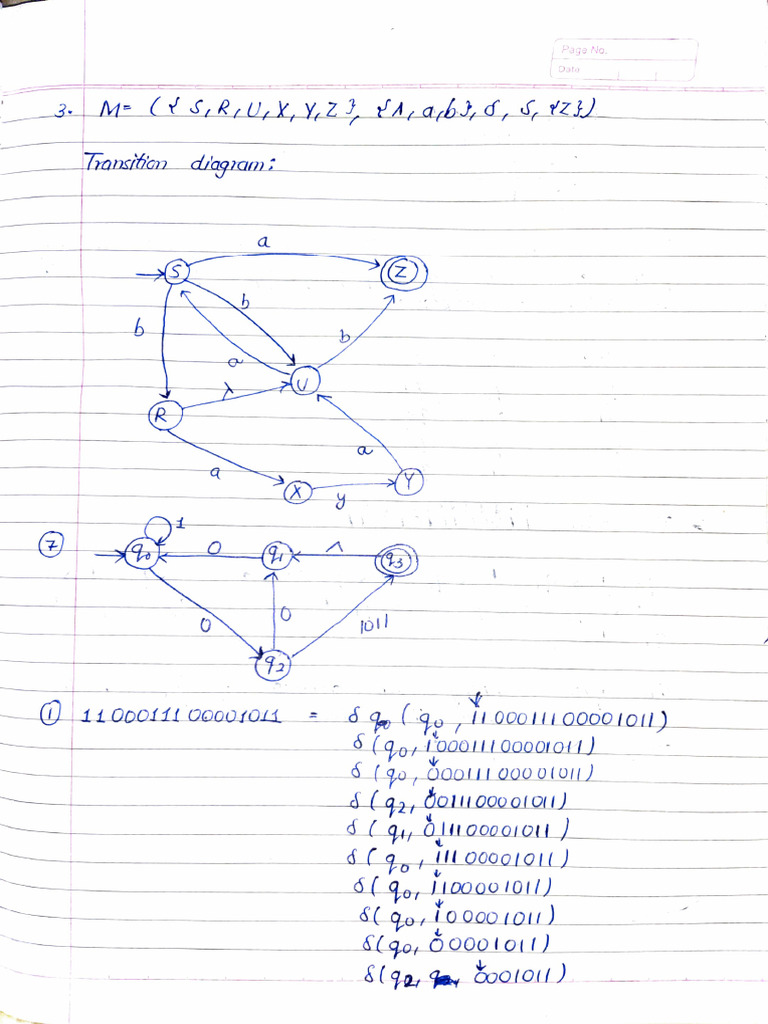 Page No.
Date
3. M= ({ S, R, U, X, Y, Z }, {Λ, a, b}, δ, S, {Z})
Transition diagram:
a
S
Z
b
b
b
a
U
λ
R
a
a
X
y
Y
7
1
q0
0
q1
Λ
q3
0
0
1011
q2
① 11000111 00001011 = δ (q0, 11000111 00001011)
δ(q0, 1000111 00001011)
δ(q0, 000111 00001011)
δ(q2, 00111 00001011)
δ(q1, 0111 00001011)
δ(q0, 111 00001011)
δ(q0, 11 00001011)
δ(q0, 1 00001011)
δ(q0, 00001011)
δ(q2, 0001011)